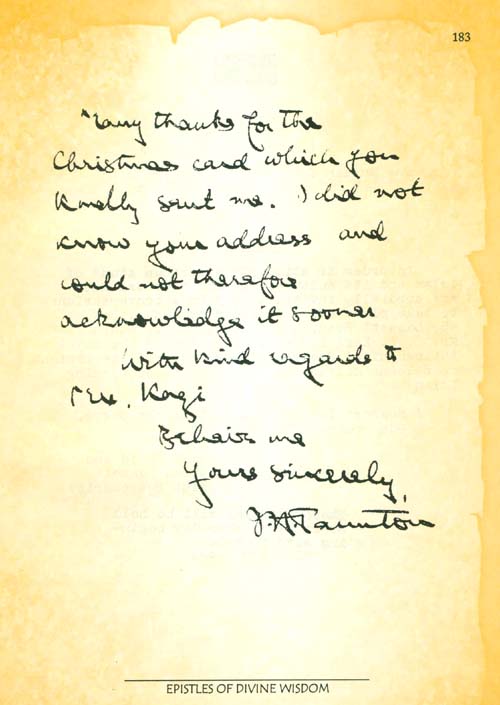 183
Many thanks for the
Christmas card which you
kindly sent me. I did not
know your address and
could not therefore
acknowledge it sooner
With kind regards to
Mrs. Kazi
Believe me
Yours sincerely,
J.A. Taunton
EPISTLES OF DIVINE WISDOM